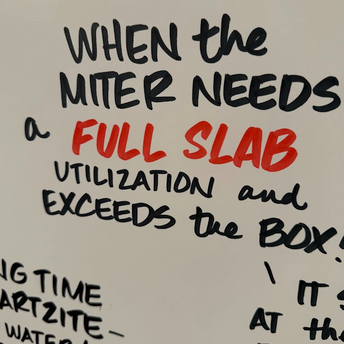 WHEN the
MITER NEEDS
a FULL SLAB
UTILIZATION and
EXCEEDS the BOX!
NG TIME
ARTZITE—
WATER
\ IT
AT the